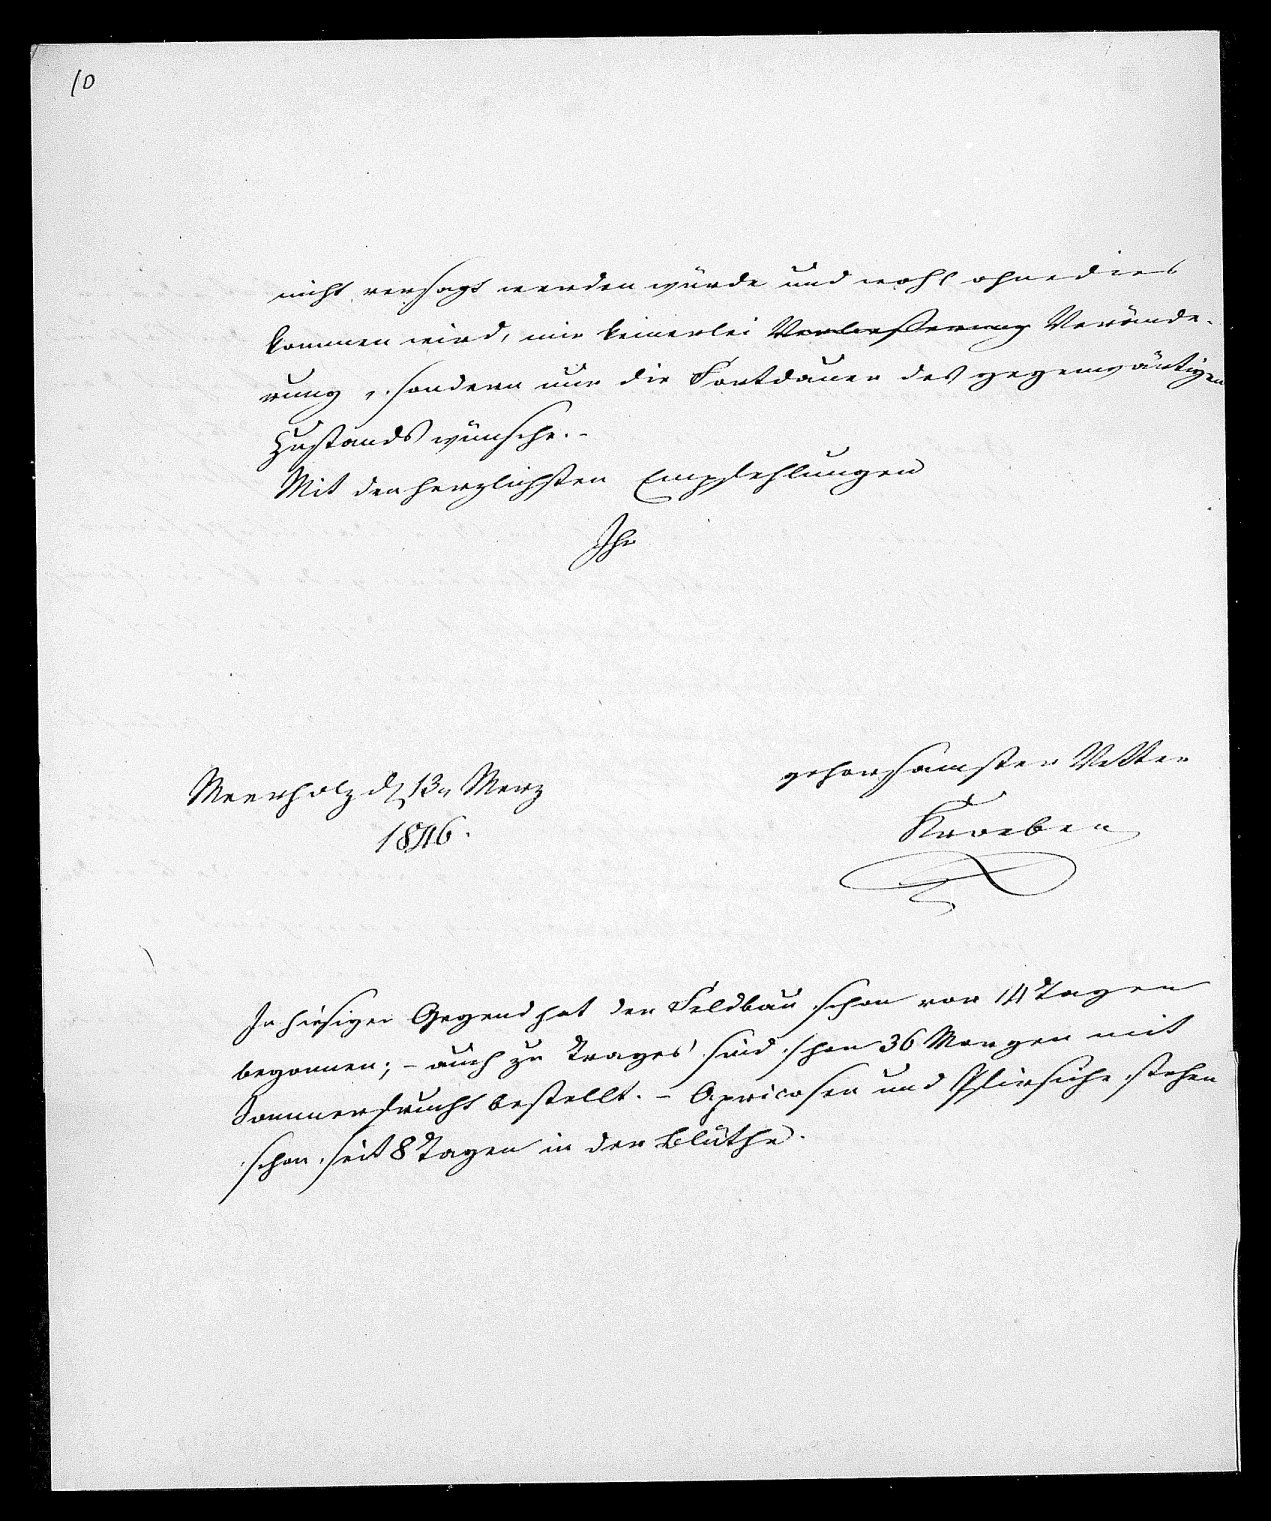 10
nicht versagt werden würde und wohl ohnedies
kommen wird, mir keinerlei Verbesserung Verände-
rung, sondern nur die Fortdauer des gegenwärtigen
Zustands wünsche. -
Mit den herzlichsten Empfehlungen
Ihr
gehorsamster Vetter
Kroeben
Meerholz d. 13. Merz
1846.
In hiesiger Gegend hat der Feldbau schon vor 14 Tagen
begonnen; - auch zu Trages sind schon 36 Morgen mit
Sommerfrucht bestellt. - Apricosen und Pfirsiche stehen
schon seit 8 Tagen in der Blüthe.